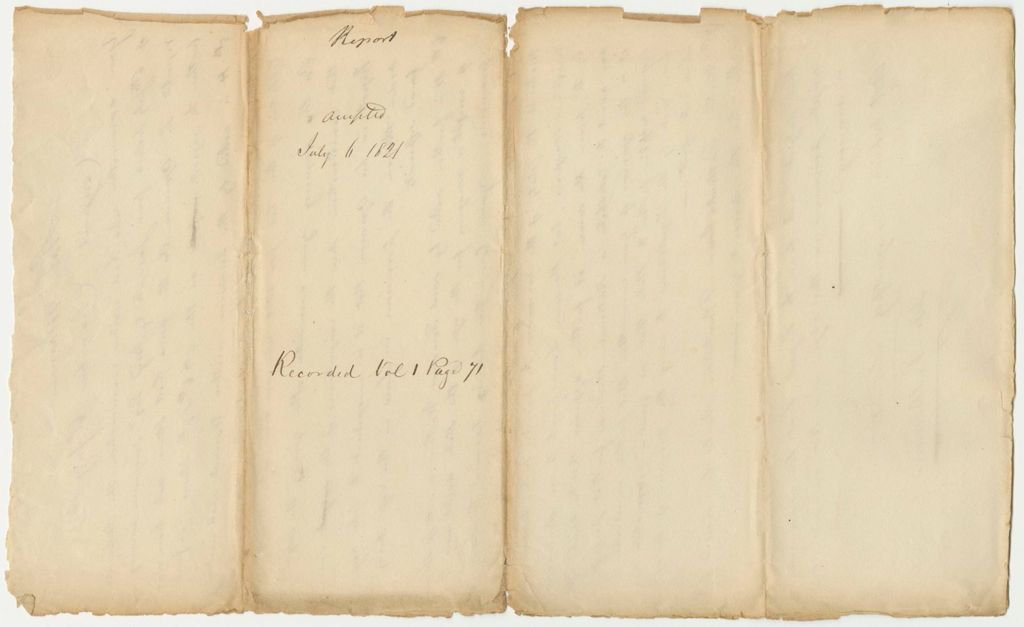 Report
accepted
July 6 1821
Recorded Vol 1 Page 71